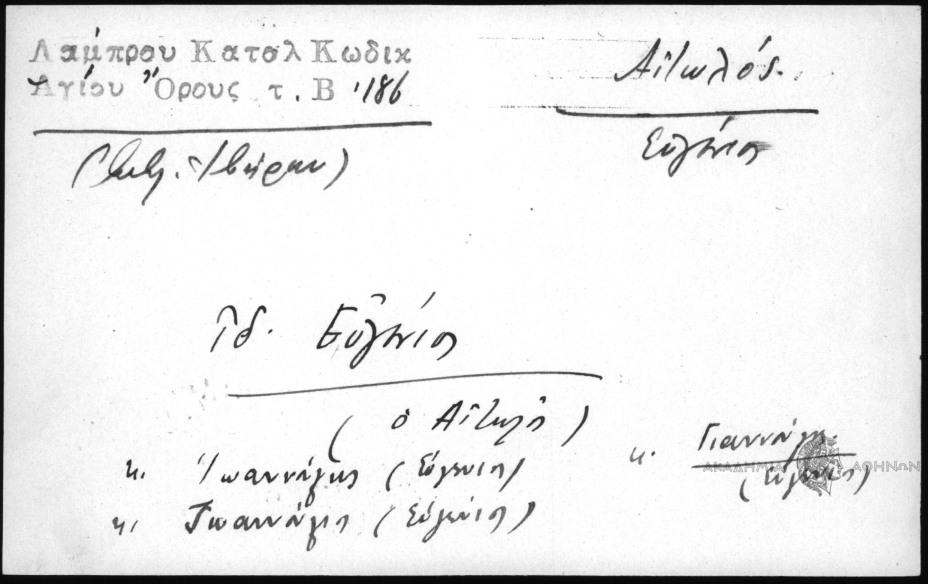 Λαμπρου Κατσλ Κωδικ
Αγίου Ὄρους τ. Β 186
Αἰτωλός.
Εὐγένιος
(Ἰβήρων)
Ἰδ. Εὐγένιος
(ὁ Αἰτωλὸς)
κ. Ἰωαννάκης (Εὐγένιος)
κ. Ἰωαννάκης (Εὐγένιος)
κ. Γιαννάκης
(Εὐγένιος)
ΑΚΑΔΗΜΙΑ ΑΘΗΝΩΝ